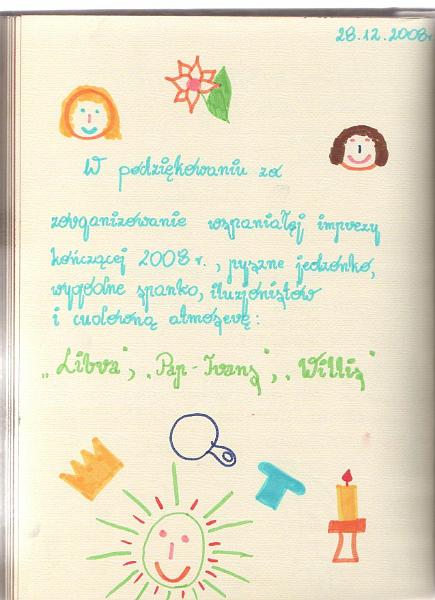 28.12.2008r.
W podziękowaniu za
zorganizowanie wspaniałej imprezy
kończącej 2008 r., pyszne jedzonko,
wygodne spanko, iluzjonistów
i cudowną atmosferę:
„Libra”, „Pap-Ivans”, „Willis”